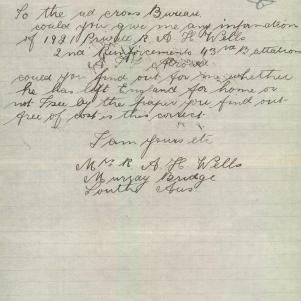 To the red cross Bureau
could you give me any information
of 1921 Private R A H Wells
2nd Reinforcements 43rd Battalion
could you find out for me whether
he has left England for home or
not I see by the paper you find out
free of cost is this correct
I am yours etc
Mrs R A H Wells
Murray Bridge
South Aus